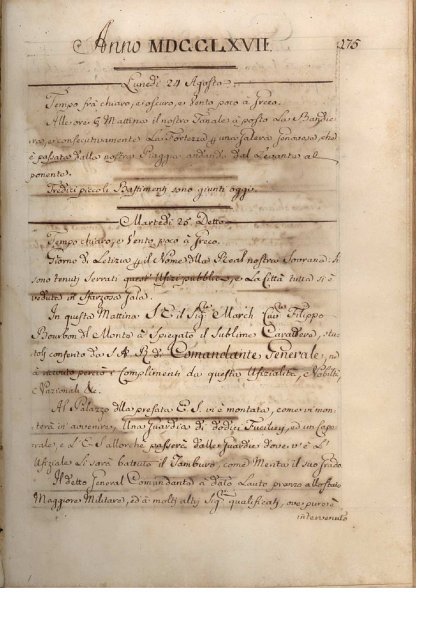 Anno MDCCLXVII. 275
Lunedì 24 Agosto
Tempo frà chiaro, e oscuro, e Vento poco à Greco.
Alle ore 5 Mattina il nostro Fanale à posto La Bandie
ra, e consecutivamente La Fortezza una Galera Genovese, che
è passata dalla nostra Piaggia andando dal Levante al
ponente.
Tredici piccoli Bastimenti sono giunti oggi.
Martedì 25 Detto
Tempo chiaro, e Vento poco à Greco.
Giorno di Letizia il Nome della Real nostra Sovrana. Si
sono tenuti Serrati questi Ufizi pubblici, e La Città tutta si è
veduta in sfarzosa Gala.
In questa Mattina S. E. il Sig.re March. Filippo
Bourbon del Monte à Spiegato il Sublime Carattere, sta
toli conferito da S. A. R. di Comandante Generale, ed
à ricevuto perciò i complimenti da questa Ufizialità, Nobiltà,
e Nazionali &c.
Al Palazzo della prefata E. S. vi è montata, come vi mon
terà in avvenire, Una Guardia di dodici Fucilieri, ed un Capo
rale, e S. E. S. allorchè passerà dalle Guardie dove vi è L'
Ufiziale Li sarà battuto il Tamburo, come Merita il suo Grado
Il detto General Comandante à dato Lauto pranzo allo stato
Maggiore Militare, ed à molti altri Sig.ri qualificati, ove pure è
intervenuto